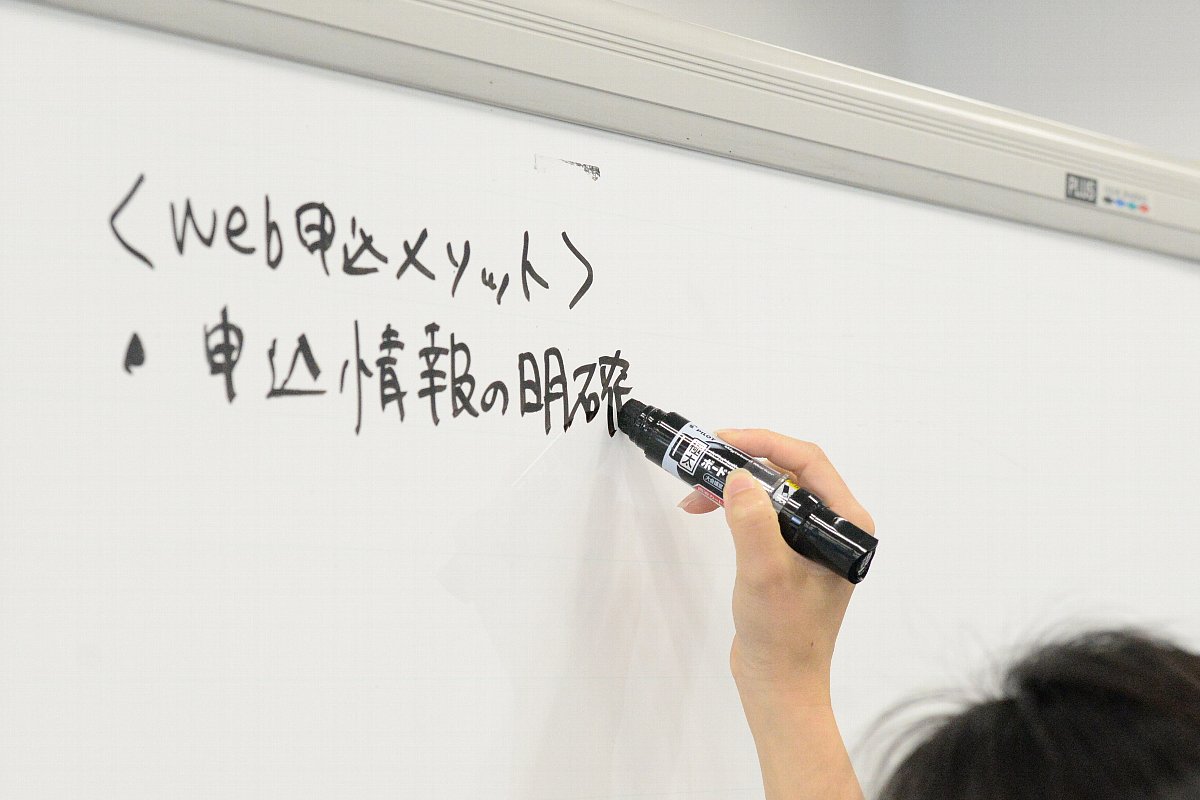 <Web申込メリット>
・申込情報の明確
PLUS
PILOT
ボード